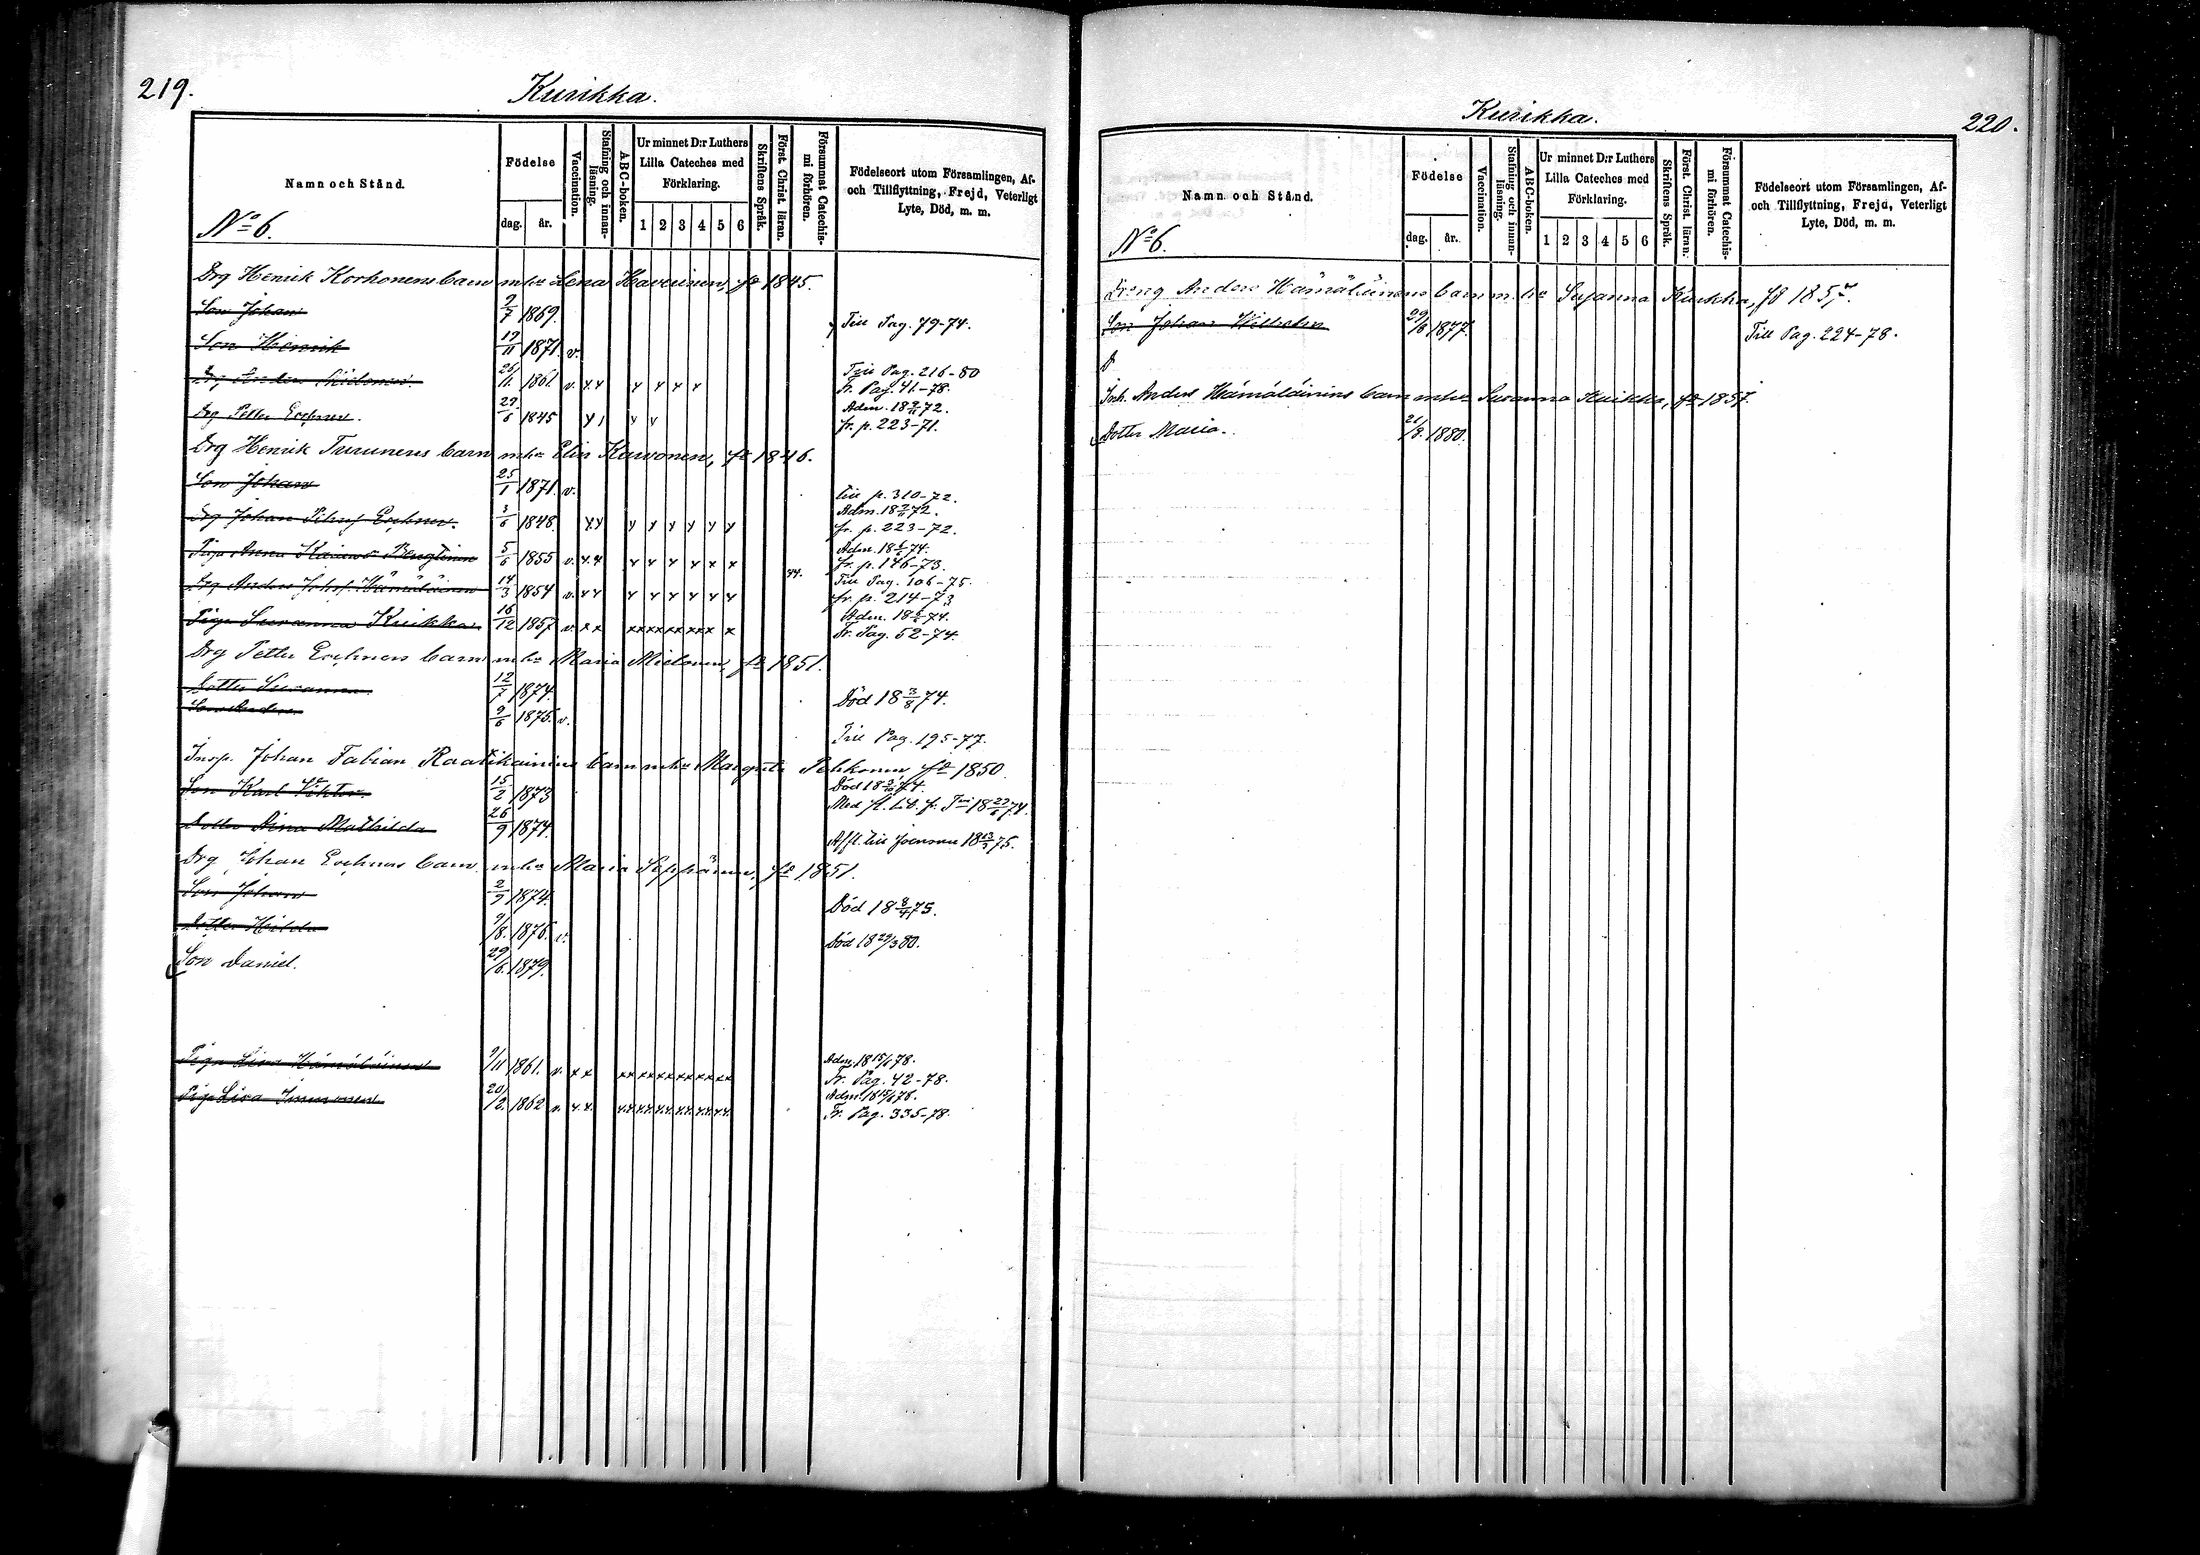 219.
Kurikka.
Namn och Stånd.
Födelse
dag. år.
Vaccination.
Stafning och innanläsning.
ABC-boken.
Ur minnet D:r Luthers Lilla Cateches med Förklaring.
1 2 3 4 5 6
Skriftens Språk.
Först. Christ. läran.
Försummat Catechismi förhören.
Födelseort utom Församlingen, Af- och Tillflyttning, Frejd, Veterligt Lyte, Död, m. m.
No 6.
Drg Henrik Korhonens barn m. hu Lena fd 1845.
Son Johan 9/7 1869. Till Pag. 79-74.
Son Henrik 19/11 1871 v.
Till Pag. 216-80
26/11 1861 v. Fr. Pag. 41-78.
Adm. 18 72.
Drg Petter 29/6 1845 fr. p. 223-71.
Drg Henrik Turunens barn m. hu Elin Karvonen, fd 1846.
Son Johan 25/1 1871. v. Till p. 310-72.
Adm. 18 72.
Drg Johan 3/6 1848. fr. p. 223-72.
Adm. 18 74.
Piga Anna 5/6 1855 v. fr. p. 176-73.
74. Till Pag. 106-75.
Drg Anders Johsf. Hämäläinen 14/3 1854 v. fr. p. 214-73
Adm. 18 74.
Piga Susanna Kuikka 16/12 1857 v. Fr. Pag. 52-74.
Drg Petter barn m. hu Maria Mielonen, fd 1851.
Dotter Susanna 12/7 1874. Död 18 3/8 74.
Son Anders 9/6 1875. v.
Till Pag. 195-77.
Insp. Johan Fabian Raatikainens barn m. hu Margreta Pehkonen fd 1850.
Son Karl Viktor. 15/2 1873 Död 18 74.
Dotter Mathilda 26/9 1874.
Affl. till Joensuu 18 75.
Drg Johan barn m. hu Maria Seppänen, fd 1851.
Son Johan 2/9 1874. Död 18 75.
Dotter Hilda 9/8. 1876. v. Död 18 29/3 80.
Son Daniel. 29/6. 1879.
Piga Lisa Hämäläinen 9/11 1861. v. Adm. 18 78.
Fr. Pag. 42-78.
Piga Lisa Immonen 20/2. 1862 v. Adm. 18 78.
Fr. Pag. 335-78.
Kurikka.
220.
Namn och Stånd.
Födelse
dag. år.
Vaccination.
Stafning och innanläsning.
ABC-boken.
Ur minnet D:r Luthers Lilla Cateches med Förklaring.
1 2 3 4 5 6
Skriftens Språk.
Först. Christ. läran.
Försummat Catechismi förhören.
Födelseort utom Församlingen, Af- och Tillflyttning, Frejd, Veterligt Lyte, Död, m. m.
No 6.
Dreng Anders Hämäläinens barn m. hu Susanna Kuikka, fd 1857.
Son Johan Wilhelm 29/8 1877. Till Pag. 224-78.
D
Inh. Anders Hämäläinens barn m. hu Susanna Kuikka, fd 1857.
Dotter Maria. 21/8. 1880.